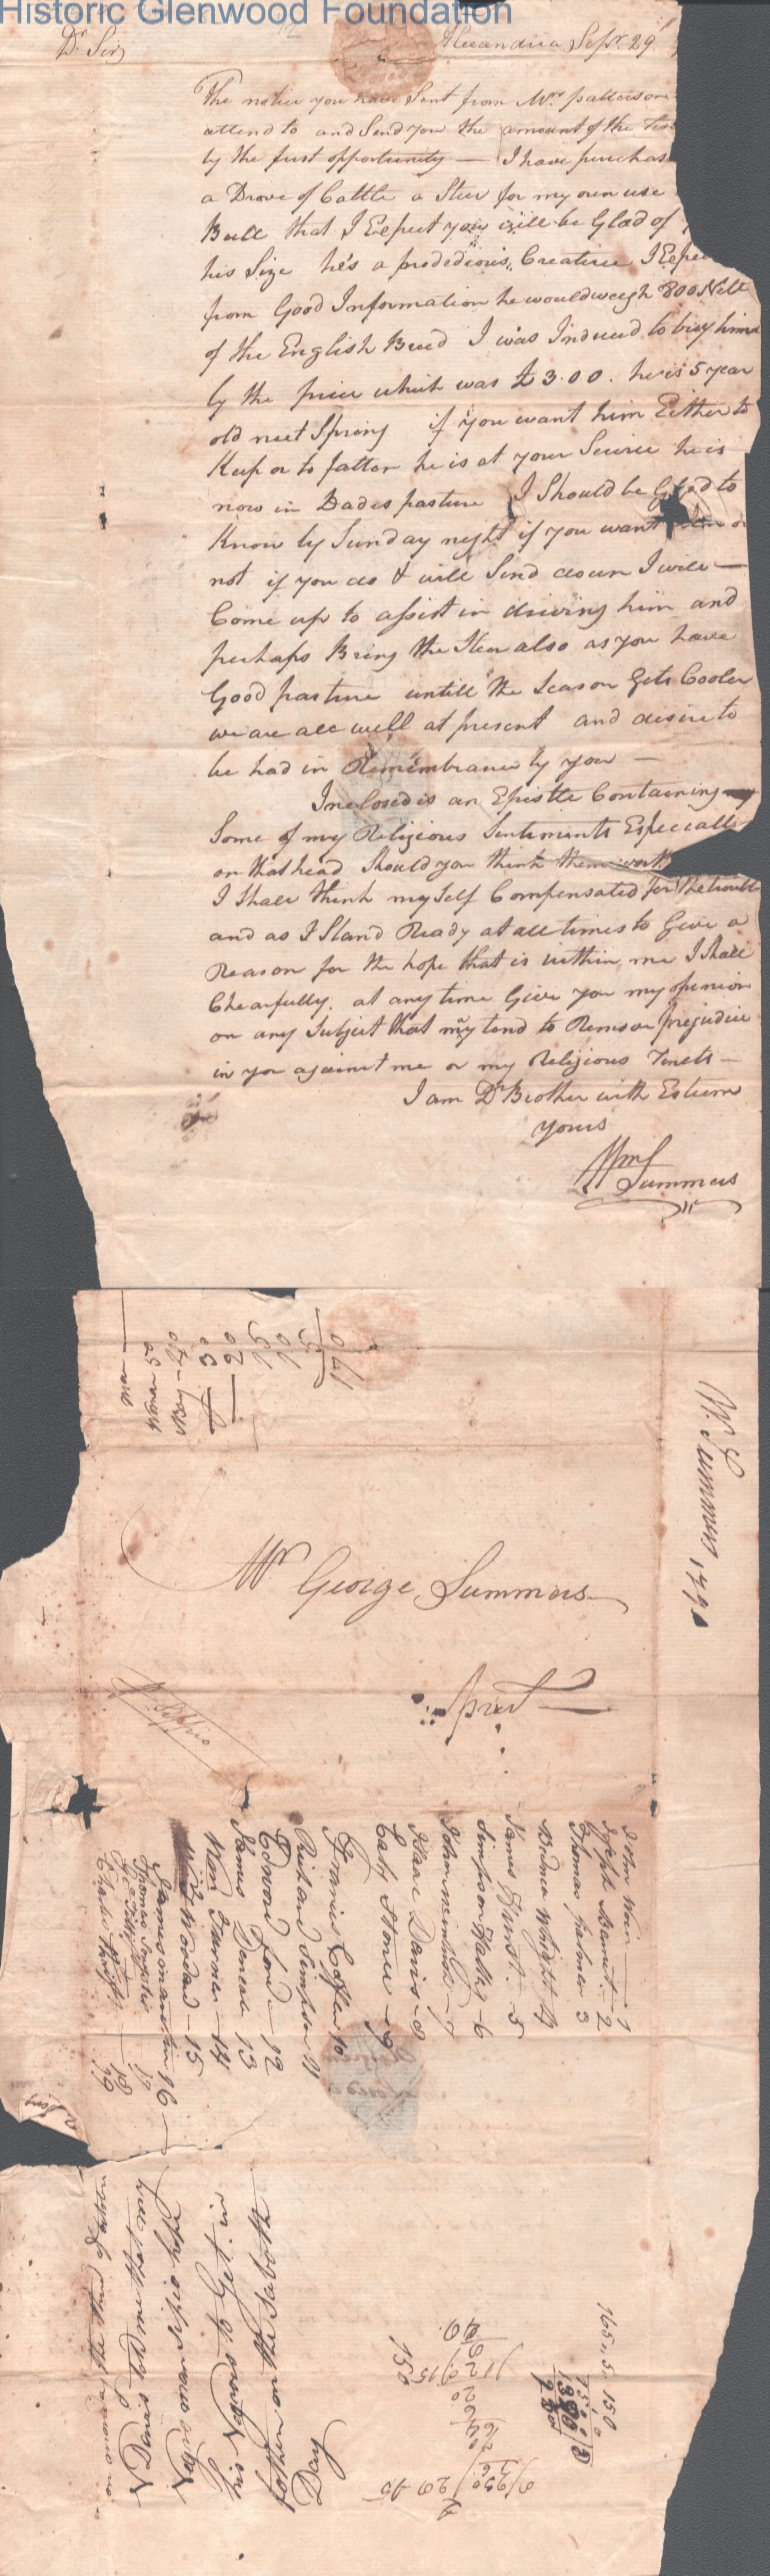 Historic Glenwood Foundation
Alexandria Sepr. 29
Dr Sir,
The notice you have Sent from Mrs patterson
attend to and Send you the amount of the
by the first opportunity — I have purchas
a Drove of Cattle a Steer for my own use
Bull that I Expect you will be Glad of
his Size he's a prodedious, Creature I Expe
from Good Information he would weigh 800 Nett
of the English Breed I was Induced to buy him
by the price which was £3.00. he is 5 year
old next Spring if you want him Either to
Keep or to fatten he is at your Service he is
now in Dades pasture I Should be Glad to
Know by Sunday night if you want him or
not if you do & will Send down I will —
Come up to assist in driving him and
perhaps Bring the Steer also as you have
Good pasture untill the Season Gets Cooler
we are all well at present and desire to
be had in Remembrance by you —
Inclosed is an Epistle Containing
Some of my Religious Sentiments Especially
on that head Should you think them worth
I Shall think my Self Compensated for the trouble
and as I Stand Ready at all times to Give a
Reason for the hope that is within me I Shall
Chearfully. at any time Give you my opinion
on any Subject that may tend to Remove prejudice
in you against me or my Religious Tenets —
I am Dr Brother with Esteem
yours
Wm Summers
man —
Woman 50
Boy — 40
30
20
15
10
5
170
W. Summers, 1790
Mr George Summers
prest
Scippio
John Ward — 1
Joseph Bennit — 2
Thomas palmer 3
Bidner Wright 4
James Hurst — 5
Simpson Halley — 6
7
Isaac Davis — 8
Caleb Stone — 9
Francis Coffer 10
Richard Simpson 11
Edward Ford — 12
James Deneale 13
Wm Turner — 14
Worden — 15
16
Thomas 17
18
Charles 19
on monday the third
N Davis told me that
Negro man Scipio
his Negroes to Get in
fother on the Saboth
Day
165.. 5.. 150
150
40